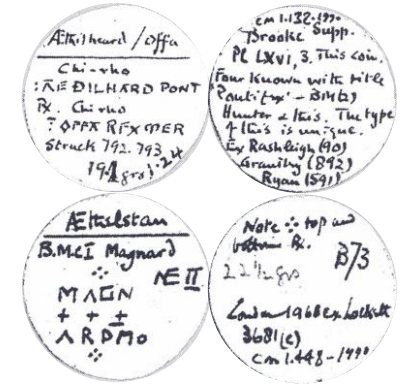 Æthilheard / Offa
Chi-rho
:AEÐILHARD PONT
Rx. Chi rho
:OFFA REX MER
Struck 792.793
19.1 grs
cm 1.132-1990
Brooke Supp.
PL LXVI, 3. This coin.
Four known with title
'Pontifex' - BM(2)
Hunter & this. The type
of this is unique.
Ex Rashleigh (90)
Grantley (892)
Ryan (591)
Æthelstan
B.M.C I Magnard
NE II
MAGN
+ + +
ARDMO
Note ⁘ top and
bottom Rx.
B/3
22½ grs
London 1968 ex Lockett
3681(c)
cm 1.448-1990